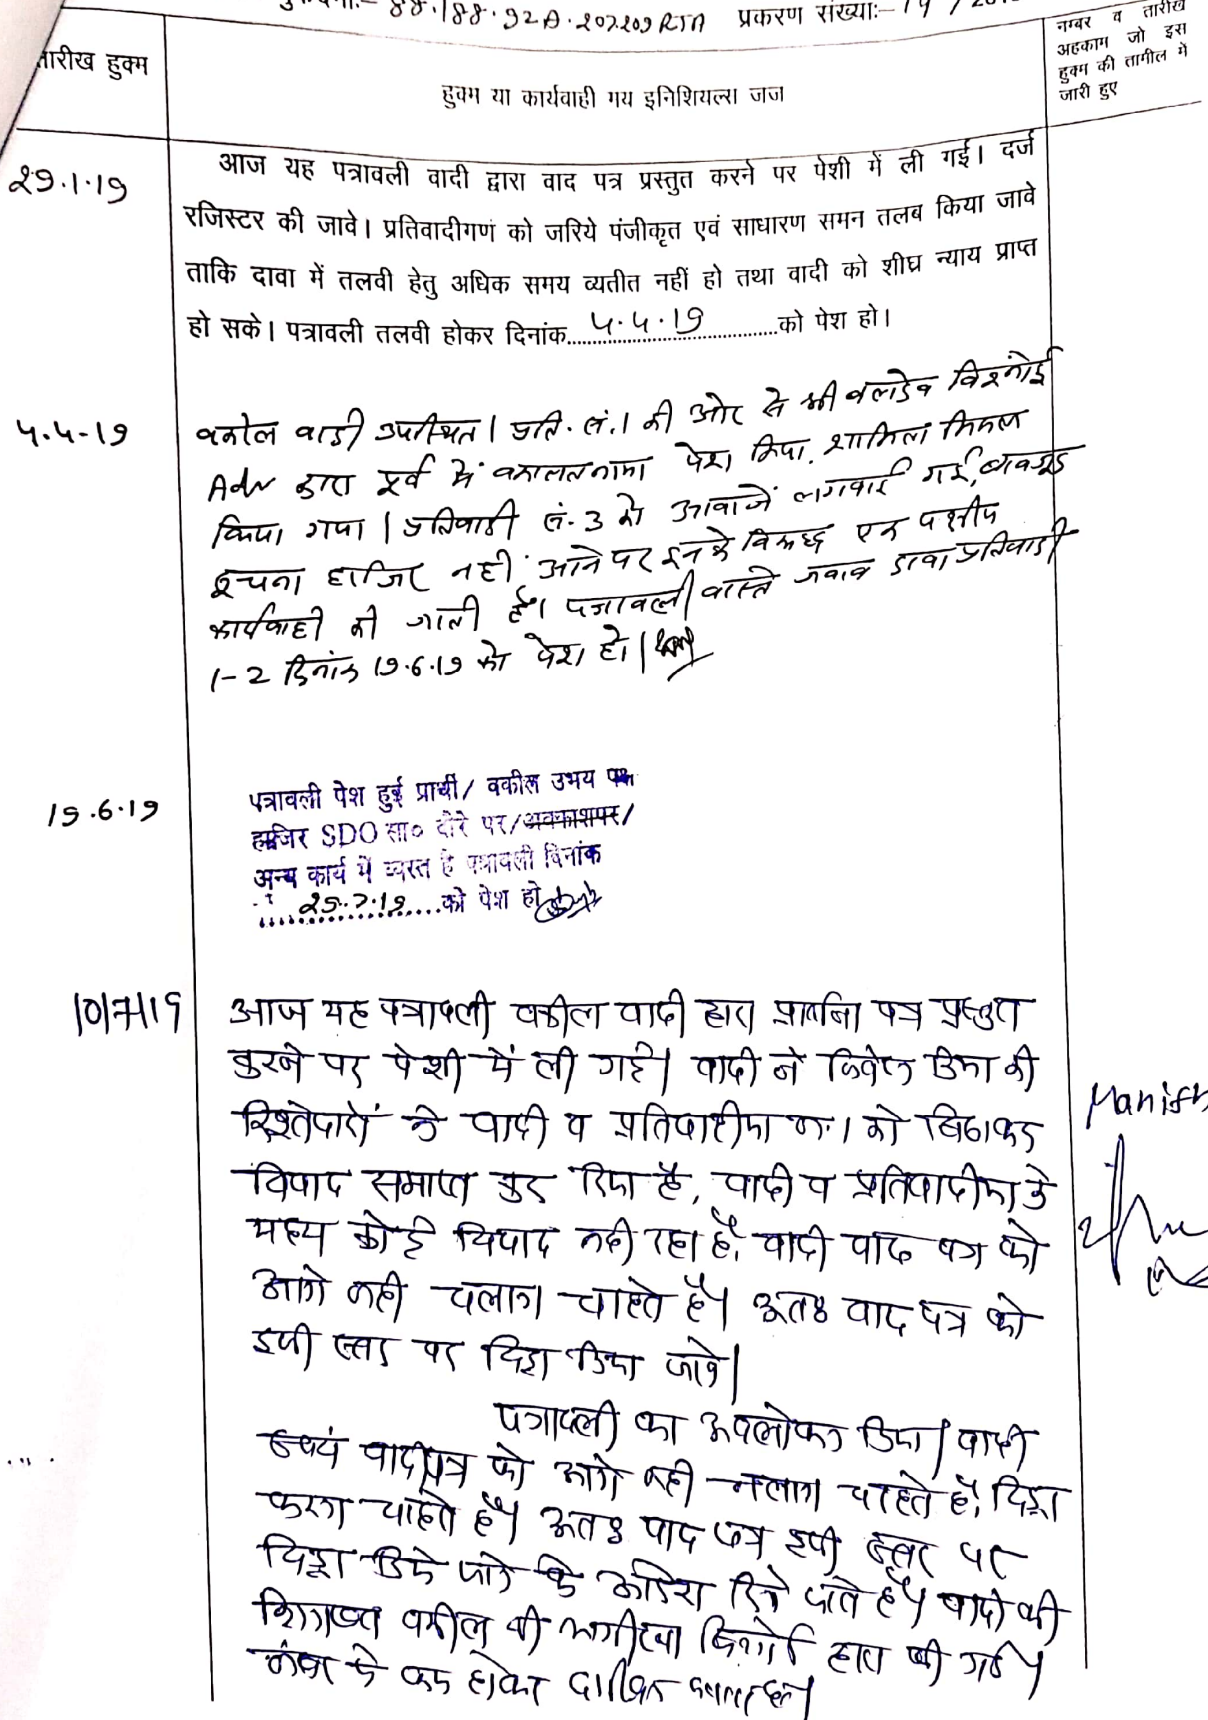 88.188.92A.207.209 RTA प्रकरण संख्याः– 19 /
तारीख हुक्म
हुक्म या कार्यवाही मय इनिशियल्स जज
नम्बर व तारीख
अहकाम जो इस
हुक्म की तामील में
जारी हुए
29.1.19
आज यह पत्रावली वादी द्वारा वाद पत्र प्रस्तुत करने पर पेशी में ली गई। दर्ज
रजिस्टर की जावे। प्रतिवादीगण को जरिये पंजीकृत एवं साधारण समन तलब किया जावे
ताकि दावा में तलवी हेतु अधिक समय व्यतीत नहीं हो तथा वादी को शीघ्र न्याय प्राप्त
हो सके। पत्रावली तलवी होकर दिनांक 4.4.19 को पेश हो।
4.4.19
वकील वादी उपस्थित। प्रति. सं.1 की ओर से श्री बलदेव विश्नोई
Adv द्वारा पूर्व में वकालतनामा पेश किया. शामिल मिसल
किया गया। प्रतिवादी सं. 3 को आवाजें लगवाई गई, बावजूद
सूचना हाजिर नहीं आने पर इनके विरूद्ध एक पक्षीय
कार्यवाही की जाती है। पत्रावली वास्ते जवाब दावा प्रतिवादी
1-2 दिनांक 19.6.19 को पेश हो।
19.6.19
पत्रावली पेश हुई प्रार्थी/ वकील उभय पक्ष
हाजिर SDO सा० दौरे पर/अवकाशपर/
अन्य कार्य में व्यस्त है पत्रावली दिनांक
25.7.19 को पेश हो
10/7/19
आज यह पत्रावली वकील वादी द्वारा प्रार्थना पत्र प्रस्तुत
करने पर पेशी में ली गई। वादी ने निवेदन किया की
रिश्तेदारों ने वादी व प्रतिवादीगण क्र.1 को बिठाकर
विवाद समाप्त कर दिया है, वादी व प्रतिवादीगण के
मध्य कोई विवाद नही रहा है, वादी वाद पत्र को
आगे नही चलाना चाहते है। अतः वाद पत्र को
इसी स्तर पर विड्रा किया जावे।
Manish
पत्रावली का अवलोकन किया। वादी
स्वयं वादपत्र को आगे नही चलाना चाहते है, विड्रा
करना चाहते है। अतः वाद पत्र इसी स्तर पर
विड्रा किये जाने के आदेश दिये जाते है। वादी की
शिनाख्त वकील श्री भागीरथ विश्नोई द्वारा की गई।
नंबर से कम होकर दाखिल दफ्तर हो।